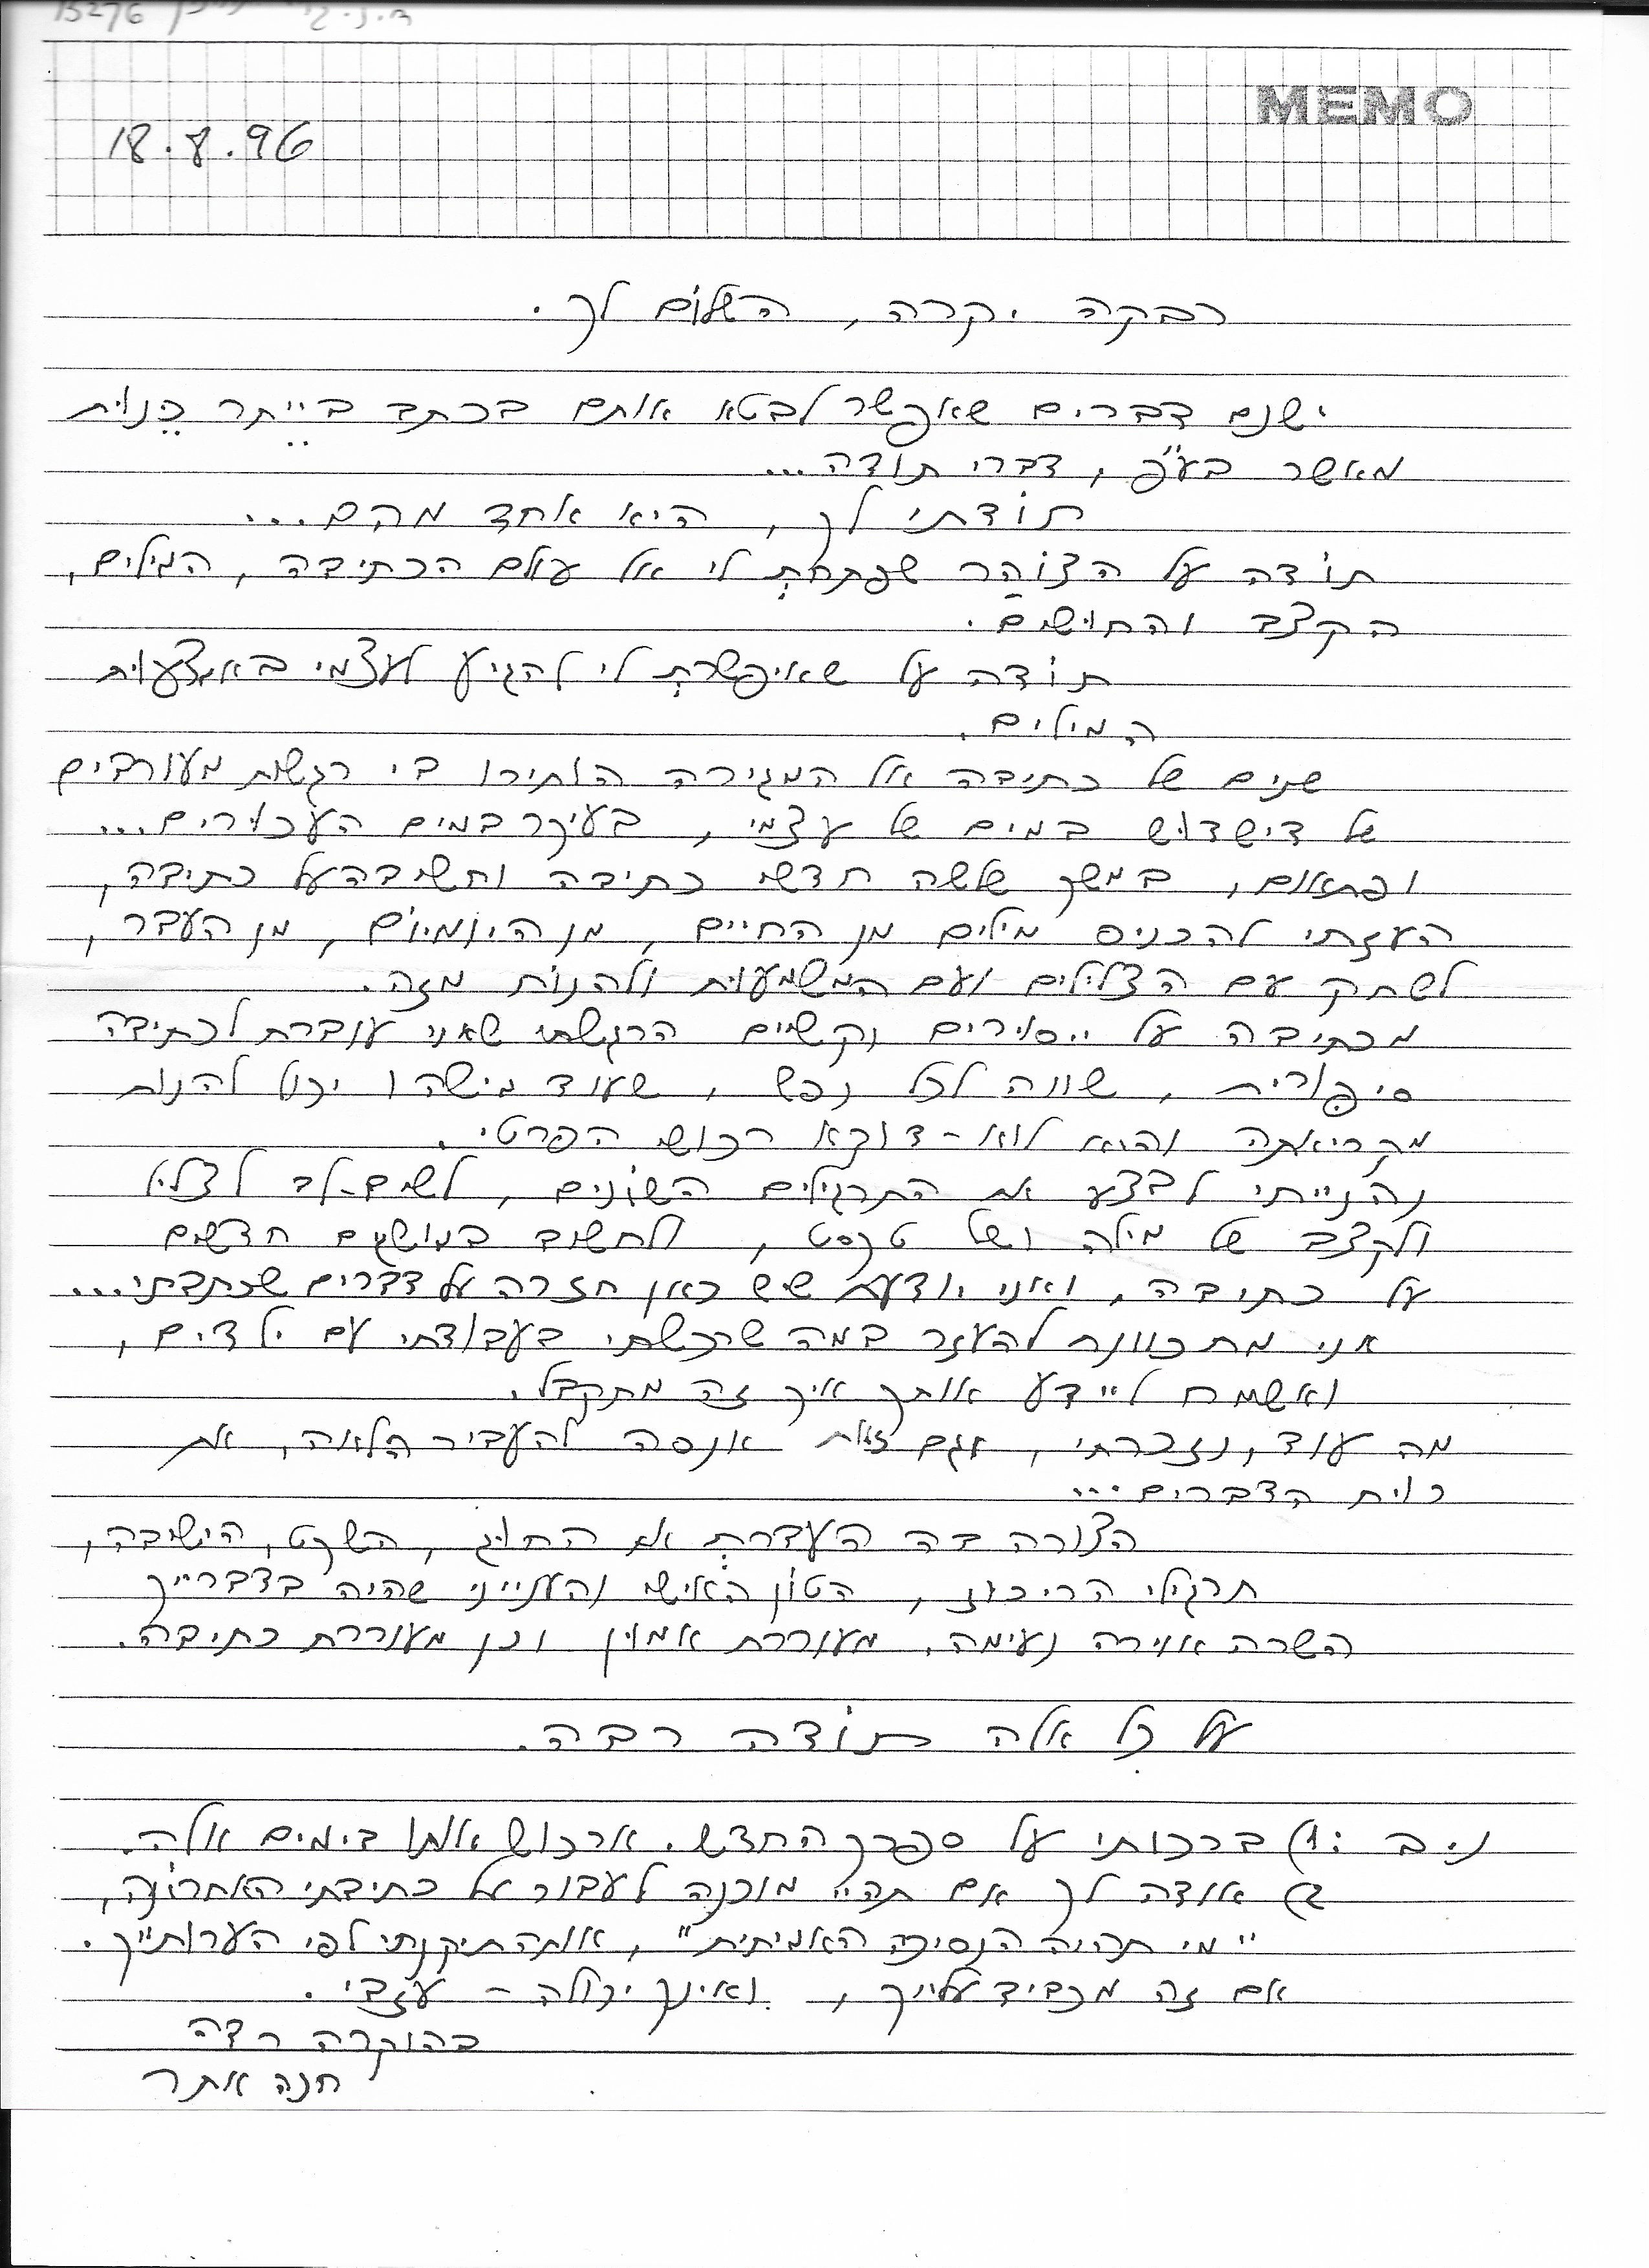 B276
MEMO
18.8.96
רבקה יקרה, השלום לך.
ישנם דברים שאפשר לבטא אותם בכתב בייתר כֵּנות
מאשר בע"פ, דברי תודה...
תוֹדתי לך, היא אחד מהם...
תוֹדה על הצוֹהר שפתחתְּ לי אל עולם הכתיבה, המילים,
הקצב והחושים.
תוֹדה על שאיפשרתְ לי להגיע לעצמי באמצעות
המילים.
שנים של כתיבה אל המגירה הותירו בי רגשות מעורבים
של דישדוש במים של עצמי, בעיקר במים העכורים...
ופתאום, במשך שלושה חדשי כתיבה וחשיבה על כתיבה,
העזתי להכניס מילים מן החיים, מן היומיום, מן העבר,
לשחק עם הצלילים ועם המשמעות ולהנות מזה.
מכתיבה על ייסורים וקשיים הרגשתי שאני עוברת לכתיבה
סיפורית, שווה לכל נפש, שעוד מישהו יכול להנות
מקריאתה והיא לאו-דוקא רכושי הפרטי.
נהנייתי לבצע את התרגילים השונים, לשים-לב לצליל
ולקצב של מילה ושל טקסט, ולחשוב במושגים חדשים
על כתיבה, ואני יודעת שיש כאן חזרה על דברים שכתבתי...
אני מתכוונת להעזר במה שרכשתי בעבודתי עם ילדים,
ואשמח ליידע אותך איך זה מתקבל.
מה עוד, נזכרתי, וגם זאת אנסה להעביר הלאה, את
רוח הדברים...
הצורה בה העברתְ את החוג, השקט, הישיבה,
תרגילי הריכוז, הטוֹן האישי והענייני שהיה בדברייך
השרה אוירה נעימה, מעוררת אמון וכן מעוררת כתיבה.
על כל אלה תוֹדה רבה.
נ.ב: 1) ברכותי על ספרך החדש. ארכוש אותו בימים אלה.
2) אודה לך אם תהיי מוכנה לעבור על כתיבתי האחרונה,
"מי תהיה הנסיכה האמיתית", אותה תיקנתי לפי הערותייך.
אם זה מכביד עלייך, ואינך יכולה - עזבי.
בהוקרה רבה
חנה אתר